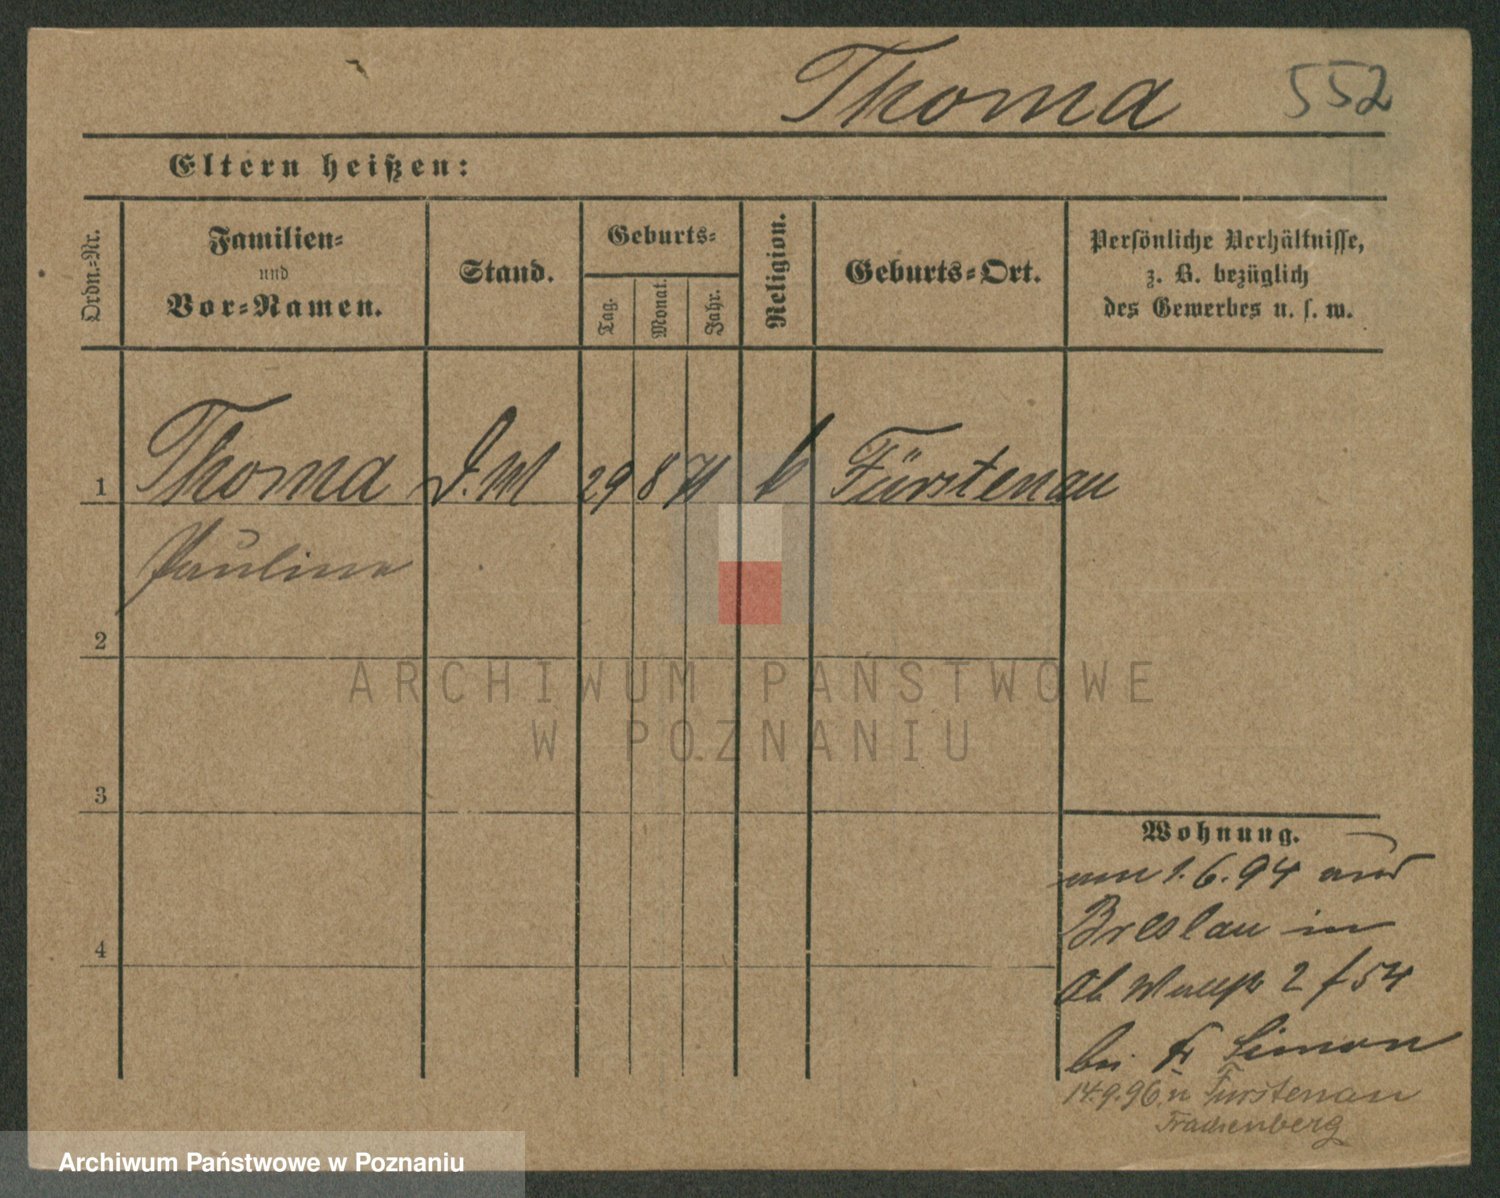 Thoma 552
Eltern heißen:
Ordn.-Nr.
Familien-
und
Vor-Namen.
Stand.
Geburts-
Tag.
Monat.
Jahr.
Religion.
Geburts-Ort.
Persönliche Verhältnisse,
z. B. bezüglich
des Gewerbes u. s. w.
1 Thoma D.M 29 8 71 k Fürstenau
Pauline
2
3
4
Wohnung.
am 1.6.94 aus
Breslau in
Ob Wallstr 2 f 54
bei Fr Simon
14.9.96. n Fürstenau
Trachenberg
ARCHIWUM PAŃSTWOWE
W POZNANIU
Archiwum Państwowe w Poznaniu